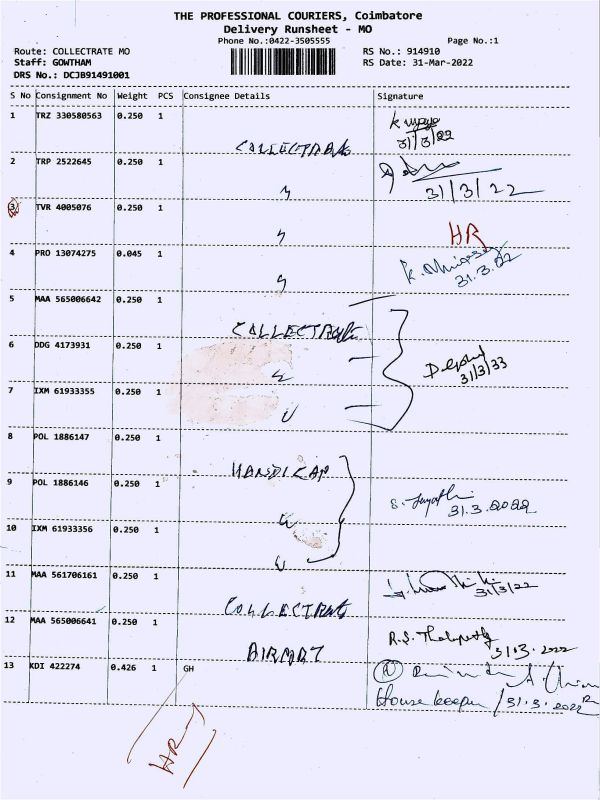 THE PROFESSIONAL COURIERS, Coimbatore
Delivery Runsheet - MO
Phone No.:0422-3505555 Page No.:1
Route: COLLECTRATE MO RS No.: 914910
Staff: GOWTHAM RS Date: 31-Mar-2022
DRS No.: DCJB91491001
S No Consignment No Weight PCS Consignee Details Signature
1 TRZ 330580563 0.250 1
31/3/22
2 TRP 2522645 0.250 1
31/3/22
3 TVR 4005076 0.250 1
HR
4 PRO 13074275 0.045 1
31.3.22
5 MAA 565006642 0.250 1
COLLECTRATE
6 DDG 4173931 0.250 1
31/3/33
7 IXM 61933355 0.250 1
8 POL 1886147 0.250 1
HANDICAP
9 POL 1886146 0.250 1
31.3.2022
10 IXM 61933356 0.250 1
11 MAA 561706161 0.250 1
31/3/22
COLLECTRATE
12 MAA 565006641 0.250 1
31.3.2022
13 KDI 422274 0.426 1 GH
House keeper / 31.3.2022
HR